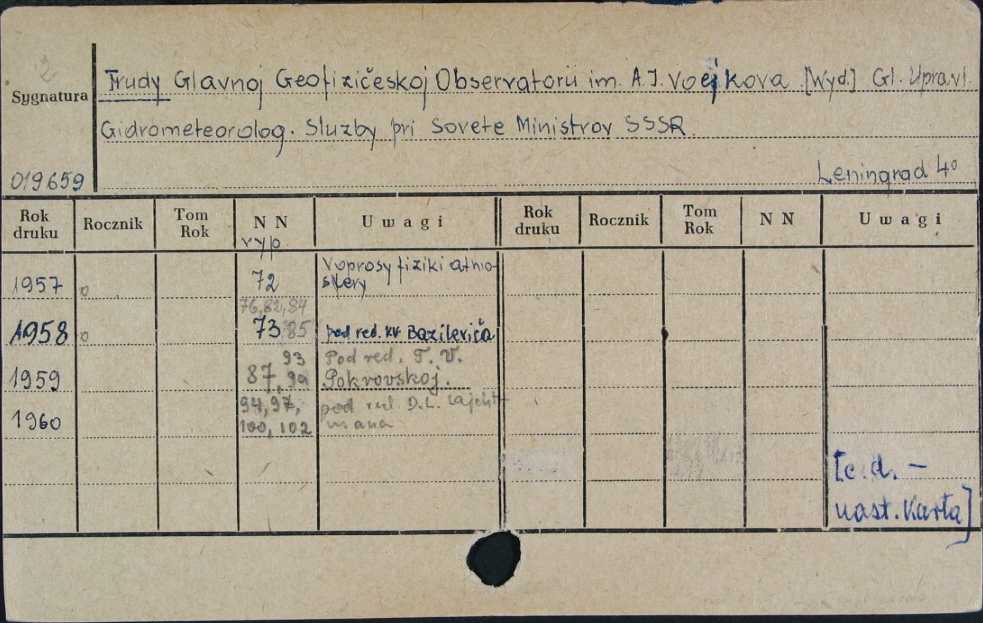 2
Sygnatura
Trudy Glavnoj Geofizičeskoj Observatorii im. A.I. Voejkova. [Wyd.] Gl. Upravl.
Gidrometeorolog. Sluzby pri Sovete Ministrov SSSR.
019659
Leningrad 4°
Rok druku Rocznik Tom Rok NN Uwagi Rok druku Rocznik Tom Rok NN Uwagi
vyp
Voprosy fiziki atmo-
1957 72 sfery
76, 82, 84
1958 73, 85 pod red. KV. Bazileviča
93 Pod red. T. V.
1959 87, 92 Pokrovskoj.
94, 97, pod red. D.L. Lajcht-
1960 100, 102 mana
[c.d. –
nast. Karta]